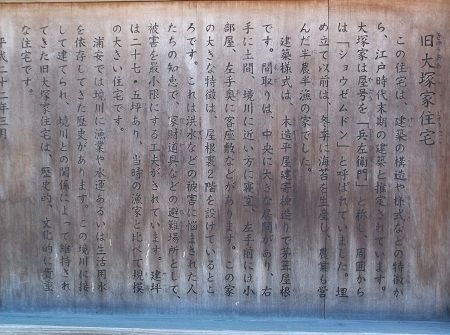 旧大塚家住宅
この住宅は、建築の構造や様式などの特徴か
ら、江戸時代末期の建築と推定されています。
大塚家は屋号を「兵左衛門」と称し、周囲から
は「ショウゼムドン」と呼ばれていました。埋
め立て以前は、冬季に海苔を生産し、農業も営
んだ半農半漁の家でした。
建築様式は、木造平屋建寄棟造りで茅葺屋根
です。間取りは、中央に大きな居間があり、右
手に土間、境川に近い方に寝室、左手前には小
部屋、左手奥に客座敷などがあります。この家
の大きな特徴は、屋根裏2階を設けているとこ
ろです。これは洪水などの被害に悩まされた人
たちの知恵で、家財道具などの避難場所として、
被害を最小限にする工夫がされています。建坪
は二十七・五坪あり、当時の漁家と比べて規模
の大きい住宅です。
浦安では境川に漁業や水運あるいは生活用水
を依存していた歴史があります。この境川に接
して建てられ、境川との関係によって維持され
てきた旧大塚家住宅は、歴史的、文化的に貴重
な住宅です。
平成二十二年三月